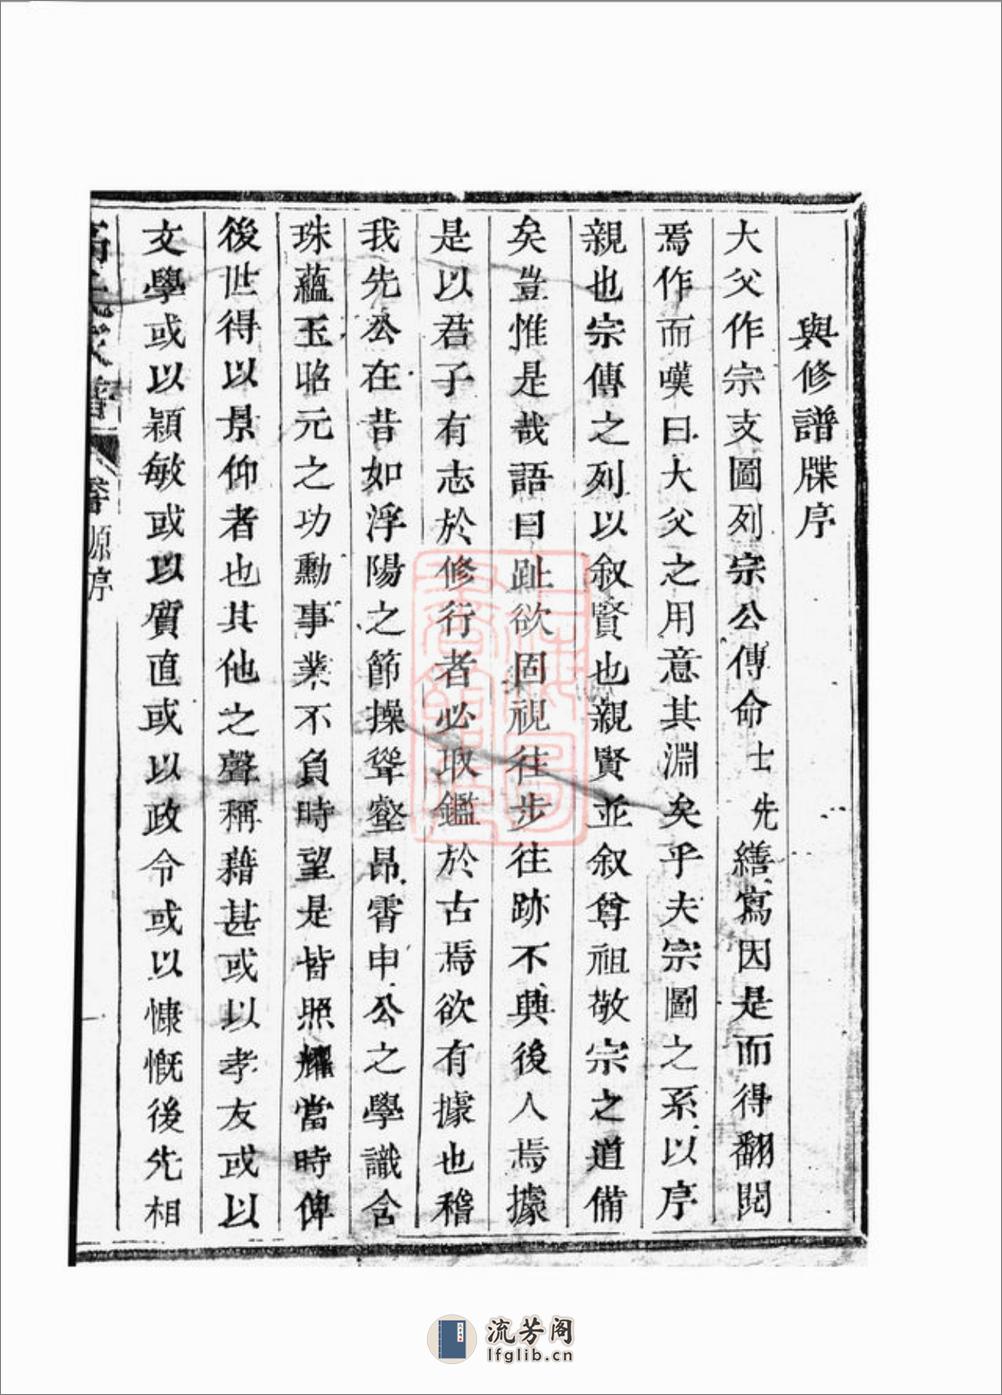 與修譜牒序
大父作宗支圖列宗公傳命士先繕寫因是而得翻閱
焉作而嘆曰大父之用意其淵矣乎夫宗圖之系以序
親也宗傳之列以叙賢也親賢並叙尊祖敬宗之道備
矣豈惟是哉語曰趾欲固視往步往跡不興後人焉據
是以君子有志於修行者必取鑑於古焉欲有據也稽
我先公在昔如浮陽之節操聳壑昂霄申公之學識含
珠蘊玉昭元之功勳事業不負時望是皆照耀當時俾
後世得以景仰者也其他之聲稱藉甚或以孝友或以
文學或以穎敏或以質直或以政令或以慷慨後先相
原序
流芳阁
lfglib.cn